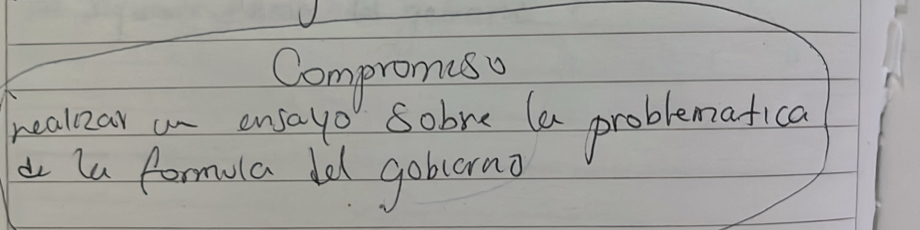 Compromiso
realizar un ensayo sobre la problematica
de la formula del gobierno